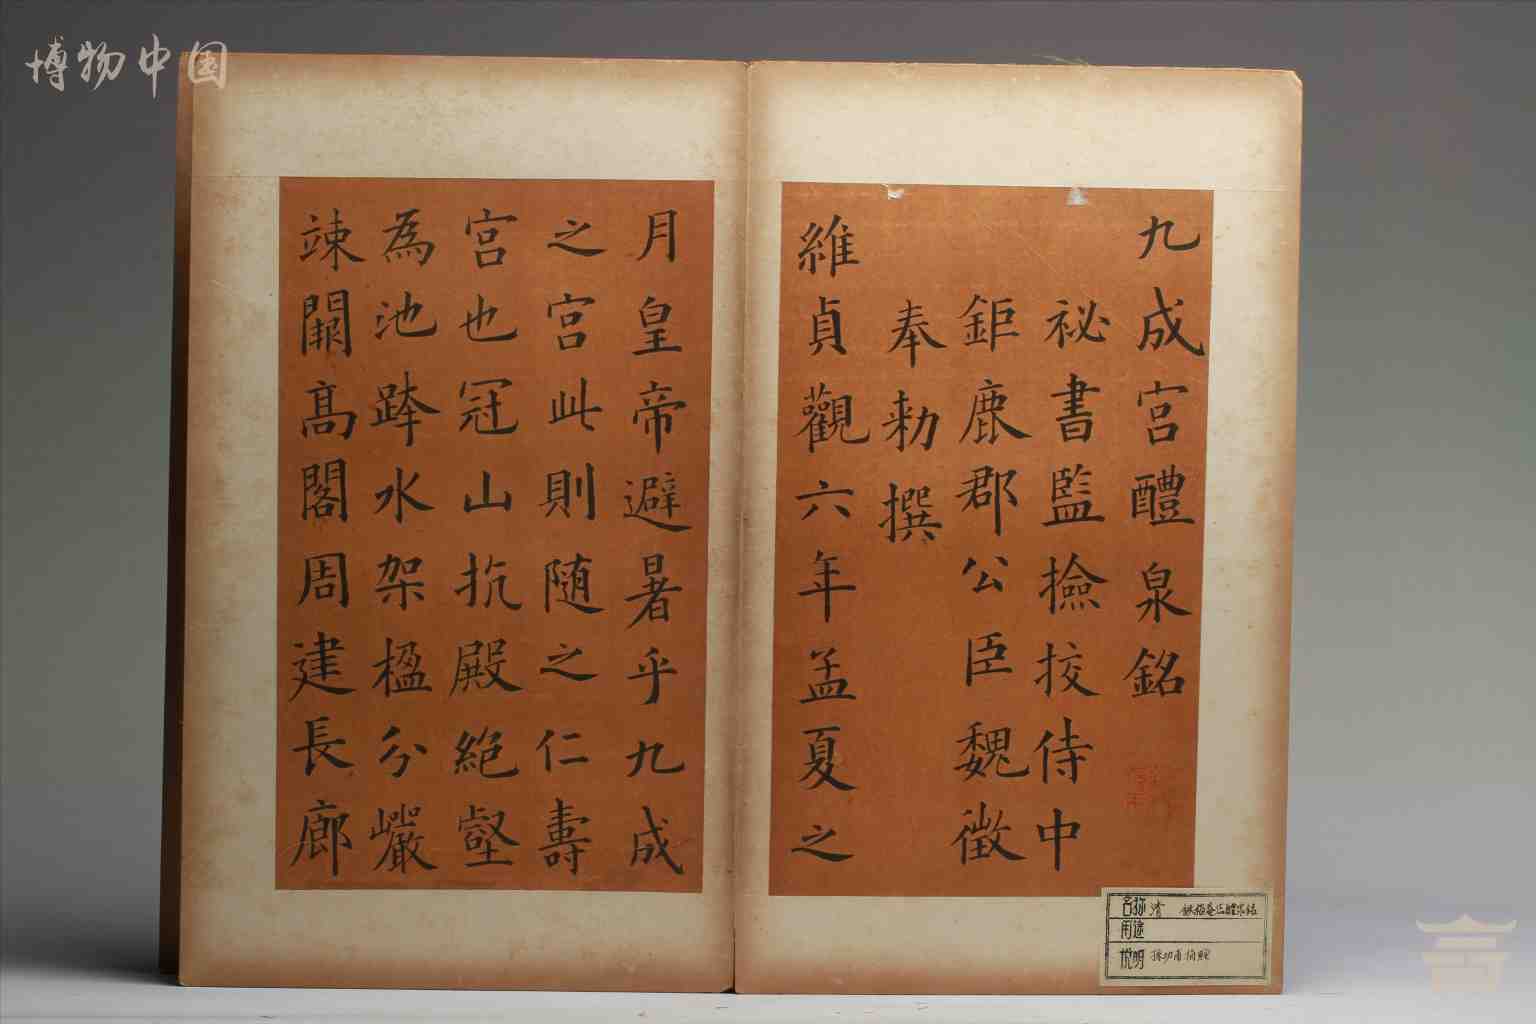 博物中国
九成宫醴泉銘
祕書監撿挍侍中
鉅鹿郡公臣魏徵
奉勑撰
維貞觀六年孟夏之
月皇帝避暑乎九成
之宫此則随之仁壽
宫也冠山抗殿絶壑
為池跨水架楹分巖
竦闕髙閣周建長廊
名称 清
用途
说明